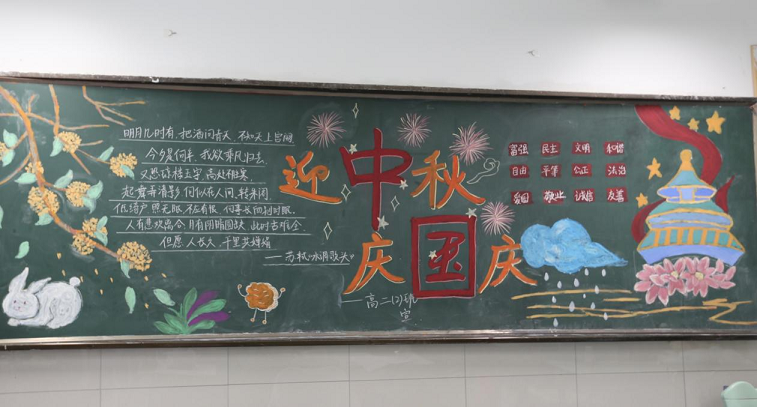 明月几时有,把酒问青天 不知天上宫阙
今夕是何年,我欲乘风归去
又恐琼楼玉宇,高处不胜寒
起舞弄清影 何似在人间,转朱阁
低绮户 照无眠 不应有恨 何事长向别时圆
人有悲欢离合 月有阴晴圆缺 此时古难全
但愿人长久 千里共婵娟
——苏轼《水调歌头》
迎中秋
庆国庆
——高二(2)班
宣
富强 民主 文明 和谐
自由 平等 公正 法治
爱国 敬业 诚信 友善